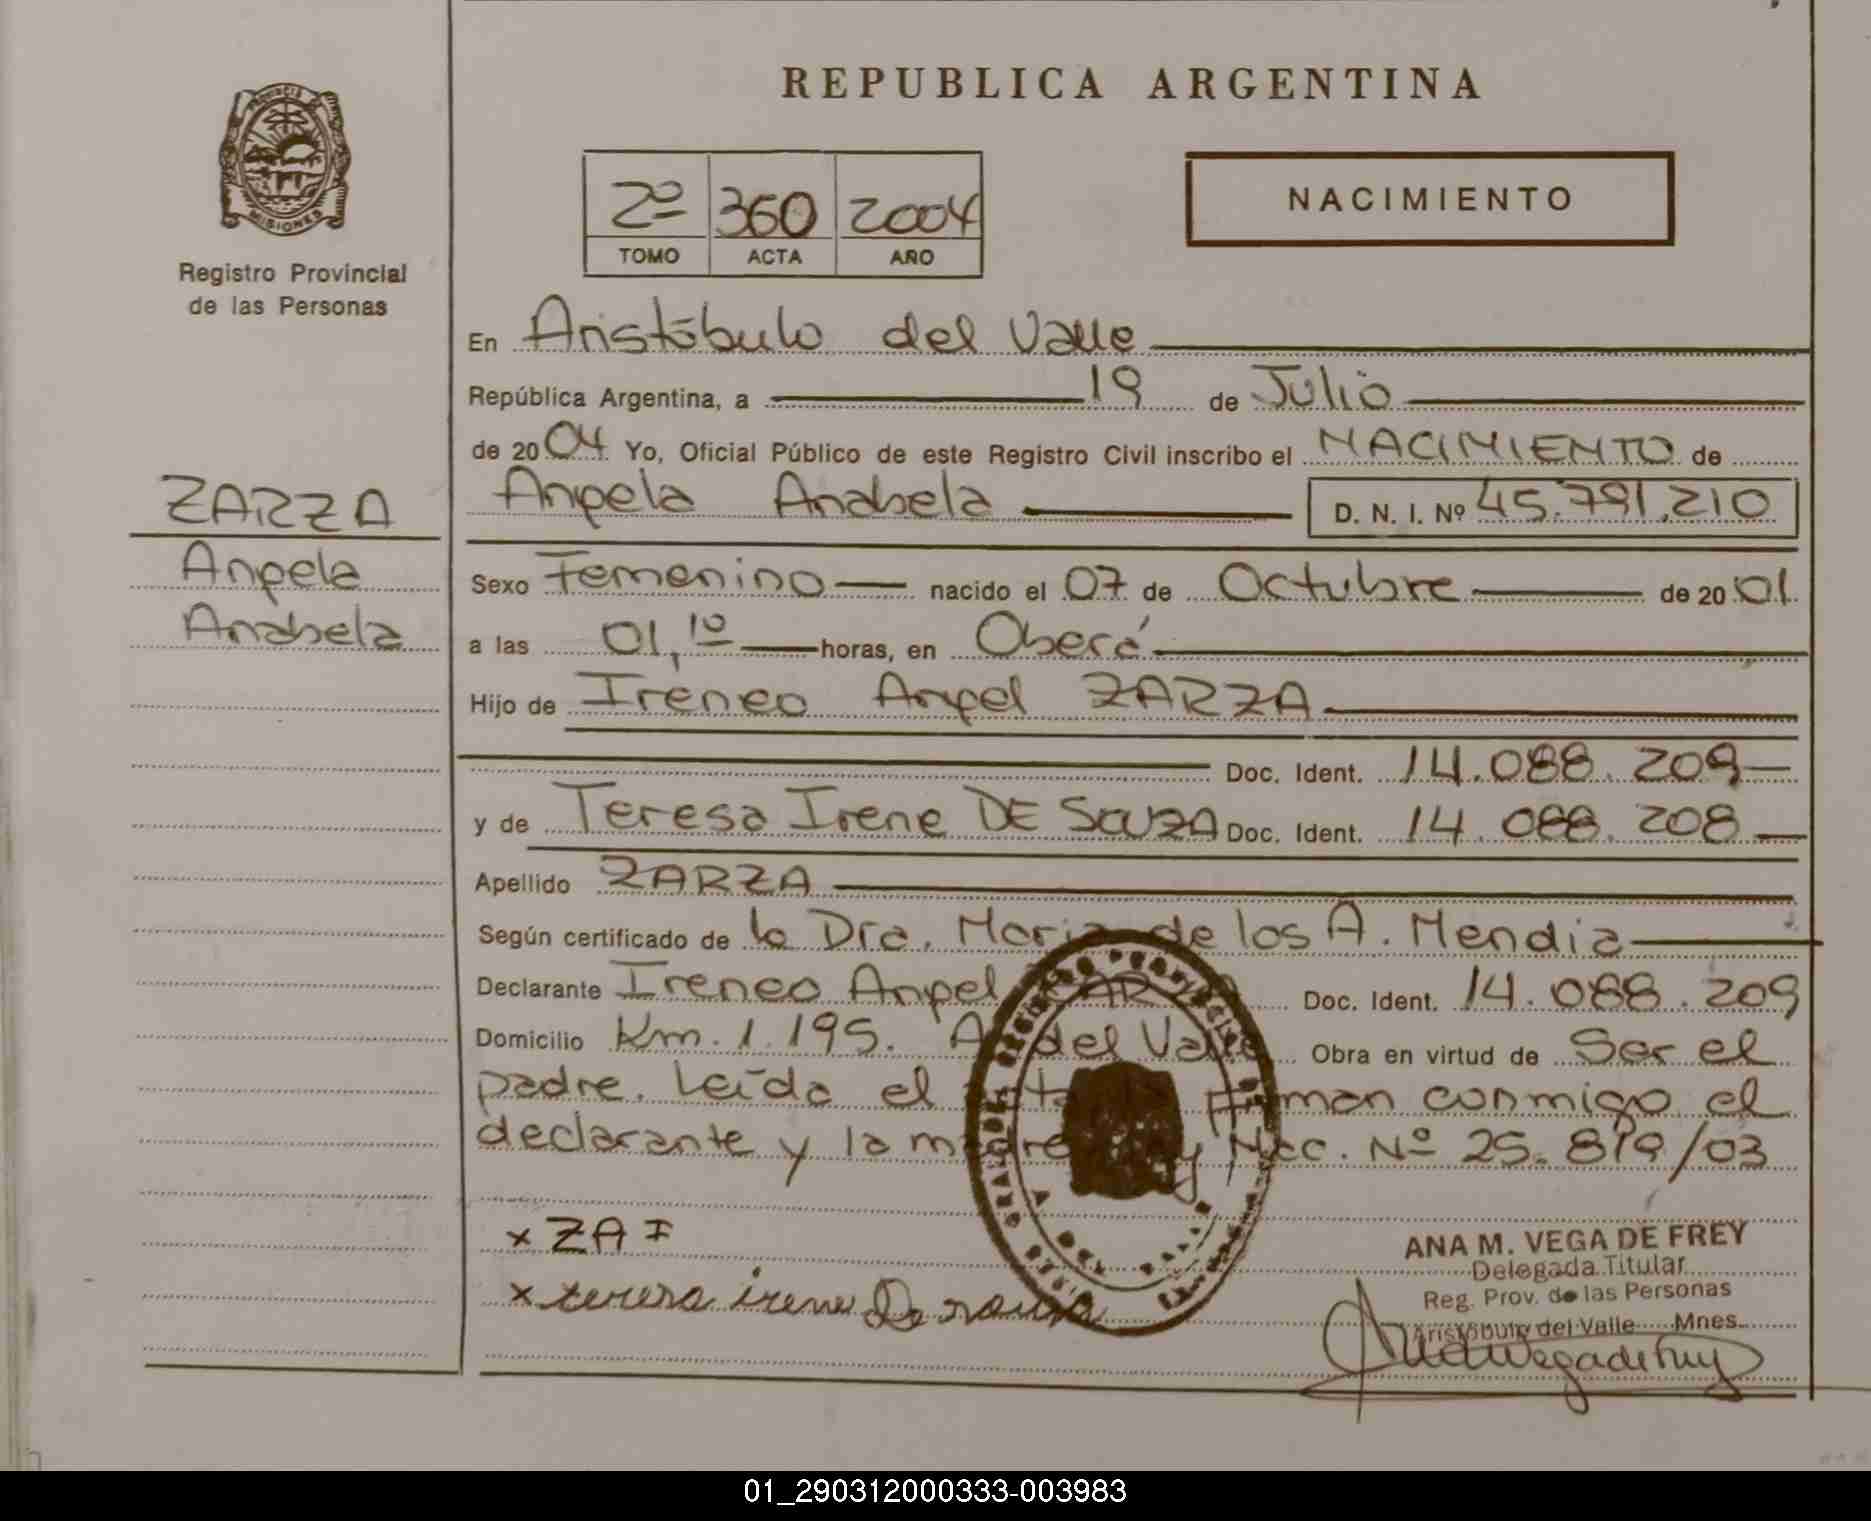 REPUBLICA ARGENTINA
PROVINCIA
MISIONES
Registro Provincial
de las Personas
2º 360 2004
TOMO ACTA AÑO
NACIMIENTO
En Aristóbulo del Valle
República Argentina, a 19 de Julio
de 2004 Yo, Oficial Público de este Registro Civil inscribo el NACIMIENTO de
Angela Anabela D. N. I. Nº 45.791.210
ZARZA
Angela
Anabela
Sexo Femenino nacido el 07 de Octubre de 2001
a las 01,10 horas, en Oberá
Hijo de Ireneo Angel ZARZA
Doc. Ident. 14.088.209
y de Teresa Irene DE SOUZA Doc. Ident. 14.088.208
Apellido ZARZA
Según certificado de la Dra. Maria de los A. Mendia
Declarante Ireneo Angel ZARZA Doc. Ident. 14.088.209
Domicilio Km. 1.195. A. del Valle Obra en virtud de Ser el
padre. Leída el acta firman conmigo el
declarante y la madre Nac. Nº 25.819/03
x ZA I
x teresa irene De souza
ANA M. VEGA DE FREY
Delegada Titular
Reg. Prov. de las Personas
Aristóbulo del Valle Mnes.
01_290312000333-003983